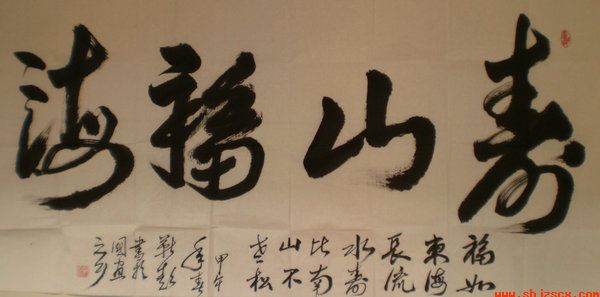 寿山福海
福如
東海
長流
水寿
比南
山不
老松
甲午
年春
書於
國畫
之乡
www.shjzscx.com